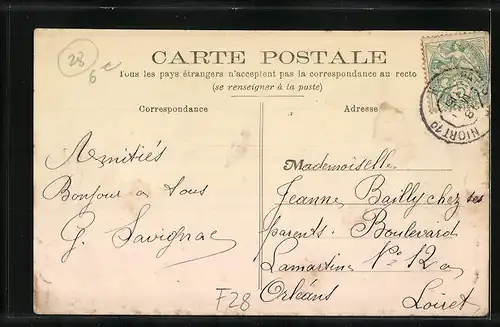 28
6e
CARTE POSTALE
Tous les pays étrangers n'acceptent pas la correspondance au recto
(se renseigner à la poste)
Correspondance
Adresse
NIORT
Amitiés
Bonjour a tous
G. Savignac
Mademoiselle
Jeanne Bailly chez ses
parents. Boulevard
Lamartine No 12
Orléans Loiret
F28